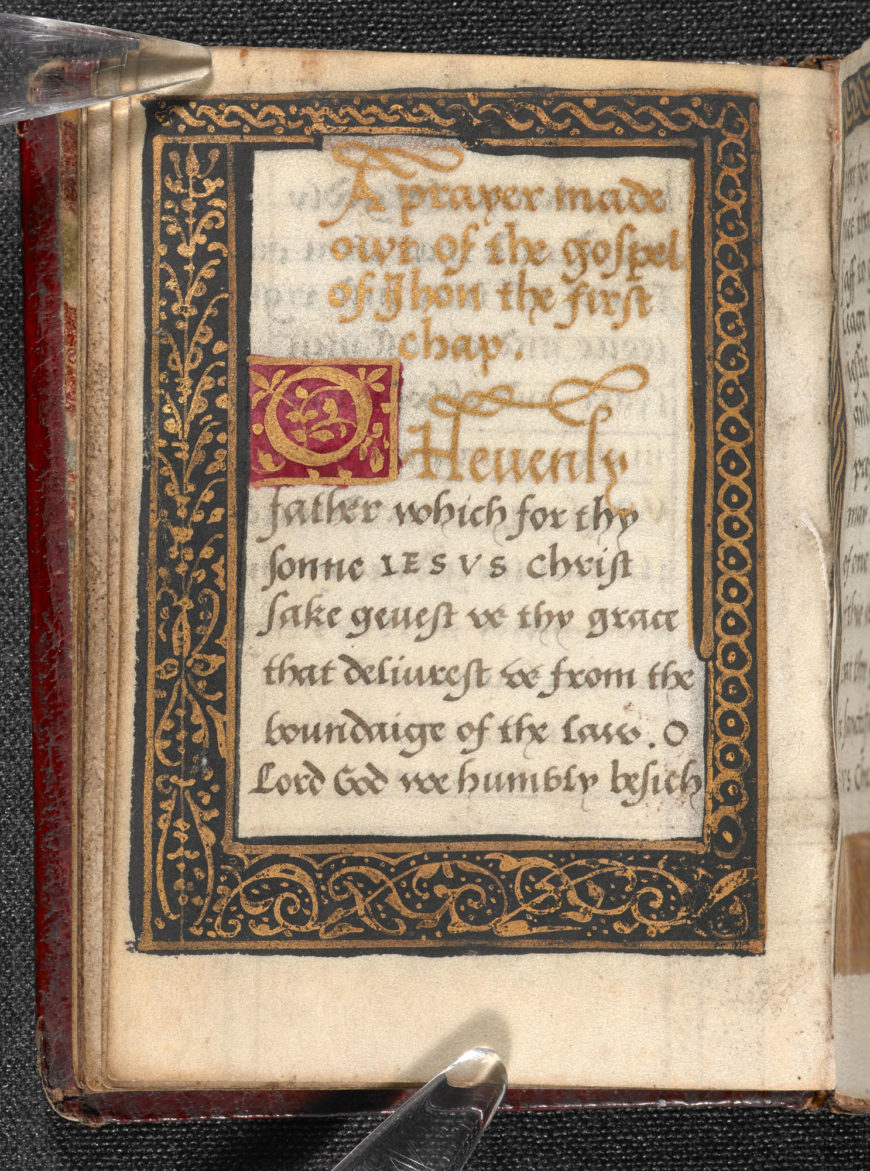 A prayer made
owt of the gospel
of Jhon the first
chap.
O Hevenly
father which for thy
sonne IESVS christ
sake gevest vve thy grace
that deliurest vve from the
boundaige of the law. O
Lord God vve humbly besich